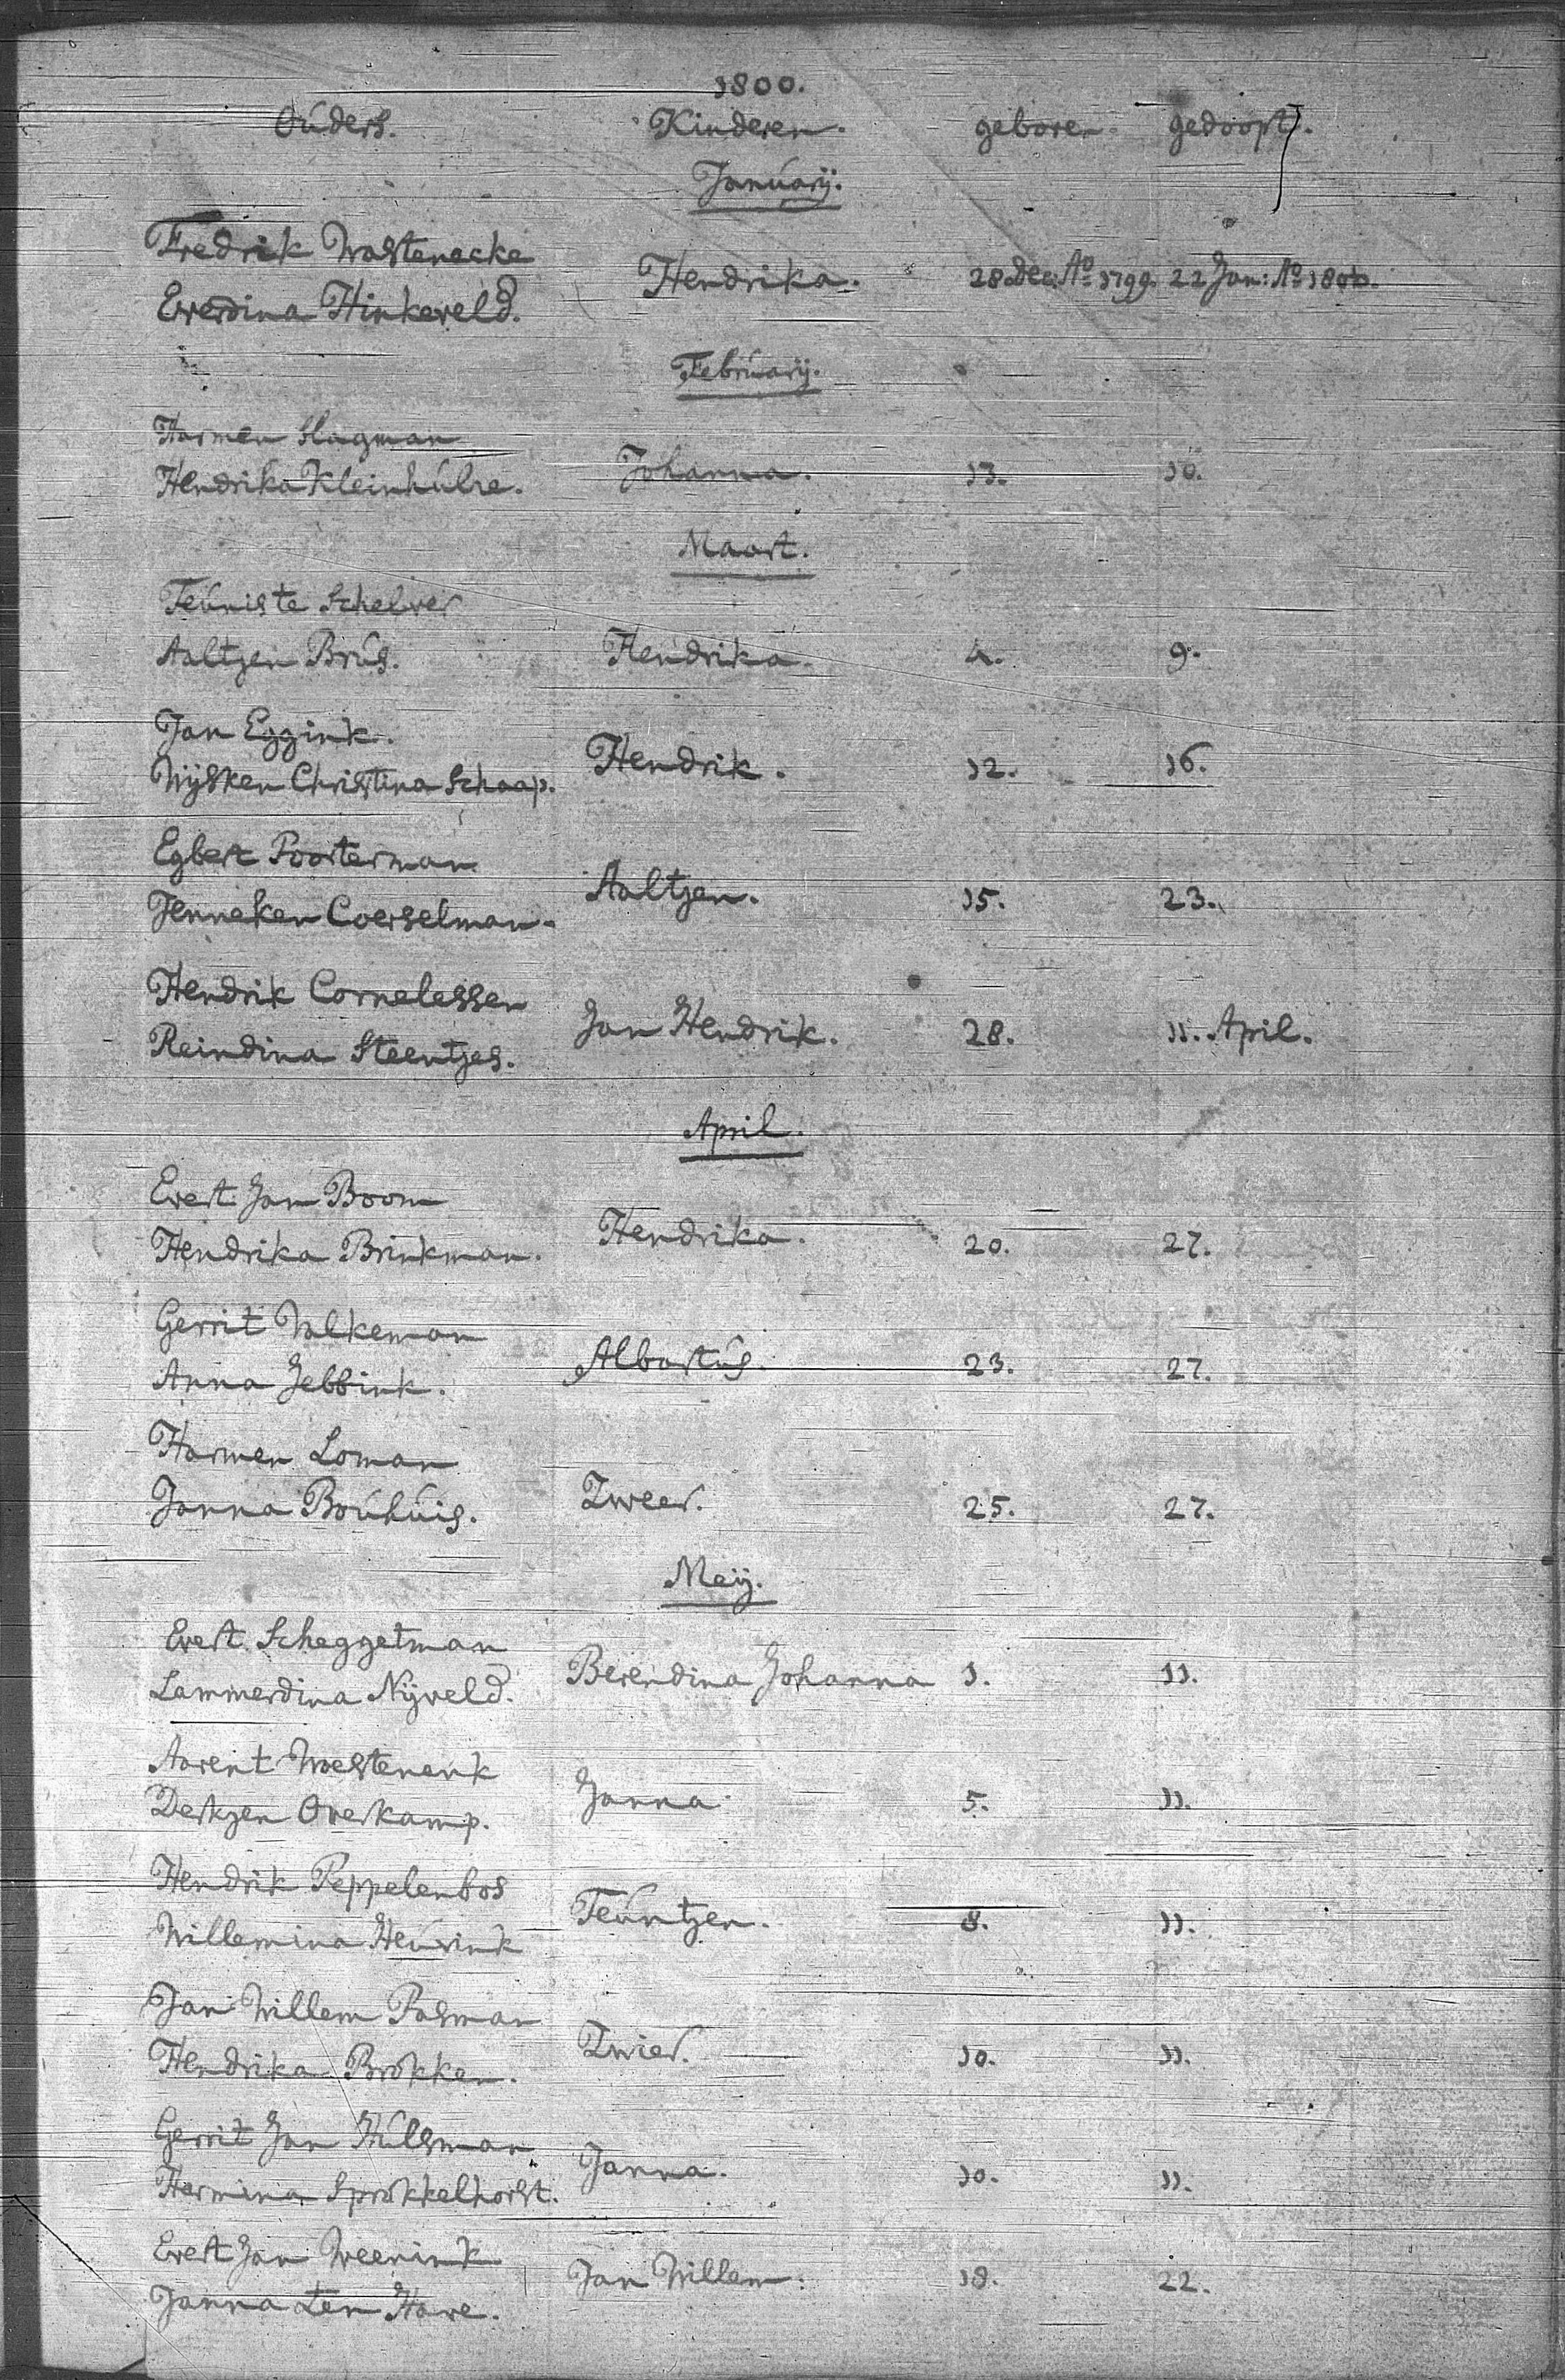 1800.
Ouders. Kinderen. geboren. gedoopt.
Januarij.
Fredrik Wastenecke
Hendrika. 28 Dec: Ao 1799. 22 Jan: Ao 1800.
Everdina Hinkeveld.
Februarij.
Harmen Slagman
Johanna. 13. 16.
Hendrika Kleinhulze.
Maart.
Teunis te Schelver
Aaltjen Brus. Hendrika. 4. 9.
Jan Eggink.
Hendrik. 12. 16.
Wijsken Christina Schaap.
Egbert Poorterman
Aaltjen. 15. 23.
Jenneken Coerselman.
Hendrik Cornelessen
Jan Hendrik. 28. 11. April.
Reindina Steentjes.
April.
Evert Jan Boom
Hendrika. 20. 27.
Hendrika Brinkman.
Gerrit Valkeman
Albartus. 23. 27.
Anna Jebbink.
Harmen Loman
Zweer. 25. 27.
Janna Bouhuis.
Meij.
Evert Scheggetman
Berendina Johanna 1. 11.
Lammerdina Nijveld.
Aarent Westenenk
Janna. 5. 11.
Derkjen Overkamp.
Hendrik Peppelenbos
Teuntjen. 8. 11.
Willemina Heurink
Jan Willem Pasman
Zwier. 10. 11.
Hendrika Brokken.
Gerrit Jan Hulsman
Janna. 10. 11.
Harmina Sprokkelhorst.
Evert Jan Weenink
Jan Willem. 18. 22.
Janna ten Have.